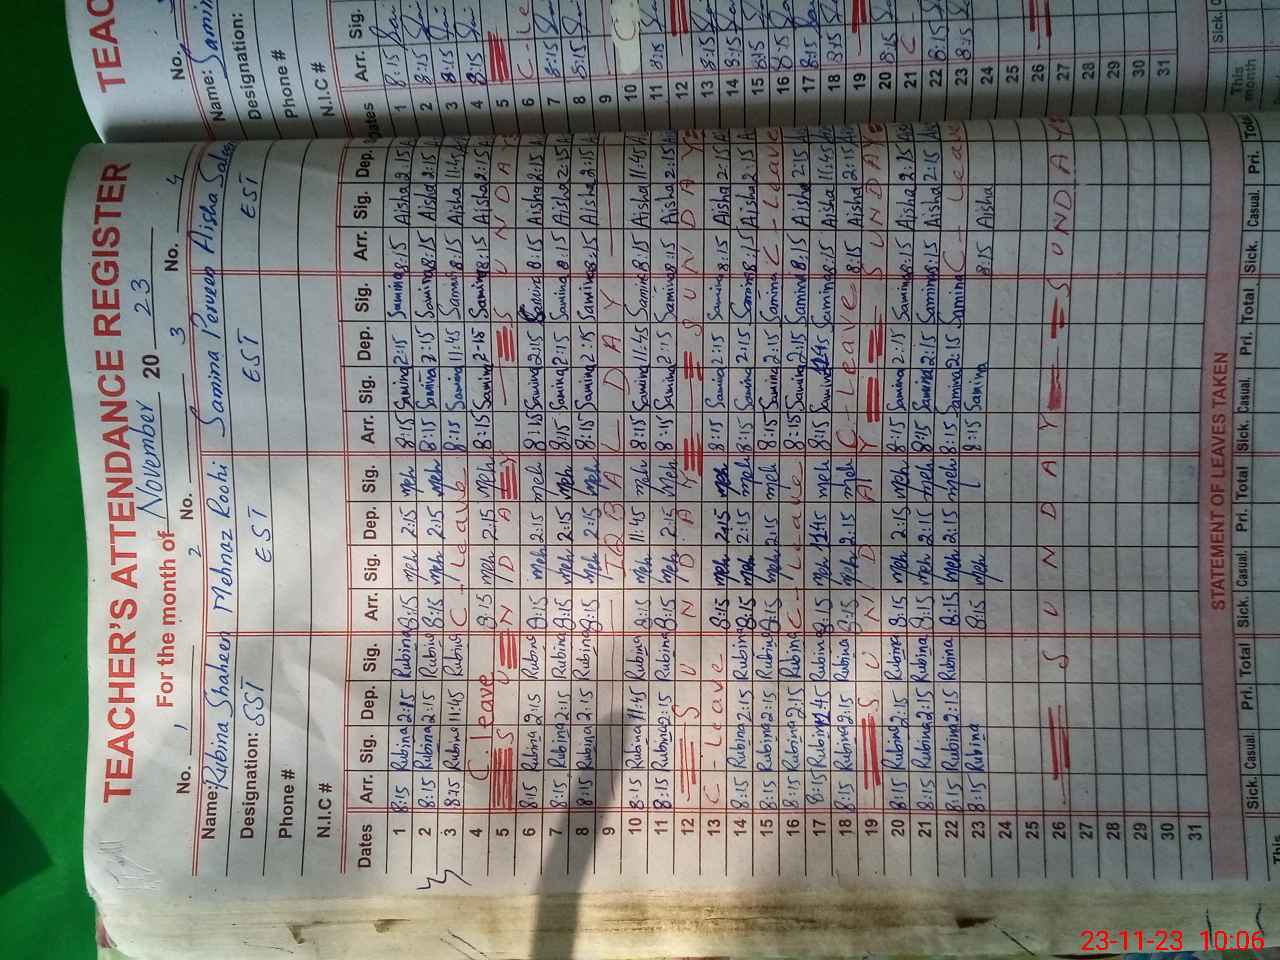 TEACHER'S ATTENDANCE REGISTER
For the month of November 2023
No. 1 No. 2 No. 3 No. 4
Name: Rubina Shaheen Mehnaz Roohi Samina Perveen Aisha Saleem
Designation: SST EST EST EST
Phone #
N.I.C #
Dates Arr. Sig. Dep. Sig. Arr. Sig. Dep. Sig. Arr. Sig. Dep. Sig. Arr. Sig. Dep.
1 8:15 Rubina 2:15 Rubina 8:15 Meh 2:15 Meh 8:15 Samina 2:15 Samina 8:15 Aisha 2:15
2 8:15 Rubina 2:15 Rubina 8:15 Meh 2:15 Meh 8:15 Samina 2:15 Samina 8:15 Aisha 2:15
3 8:15 Rubina 11:45 Rubina C - Leave 8:15 Samina 11:45 Samina 8:15 Aisha 11:45
4 C. leave 8:15 Meh 2:15 Meh 8:15 Samina 2:15 Samina 8:15 Aisha 2:15
5 S U N D A Y S U N D A Y
6 8:15 Rubina 2:15 Rubina 8:15 Meh 2:15 Meh 8:15 Samina 2:15 Samina 8:15 Aisha 2:15
7 8:15 Rubina 2:15 Rubina 8:15 Meh 2:15 Meh 8:15 Samina 2:15 Samina 8:15 Aisha 2:15
8 8:15 Rubina 2:15 Rubina 8:15 Meh 2:15 Meh 8:15 Samina 2:15 Samina 8:15 Aisha 2:15
9 IQBAL DAY
10 8:15 Rubina 11:45 Rubina 8:15 Meh 11:45 Meh 8:15 Samina 11:45 Samina 8:15 Aisha 11:45
11 8:15 Rubina 2:15 Rubina 8:15 Meh 2:15 Meh 8:15 Samina 2:15 Samina 8:15 Aisha 2:15
12 S U N D A Y S U N D A Y
13 C - Leave 8:15 Meh 2:15 Meh 8:15 Samina 2:15 Samina 8:15 Aisha 2:15
14 8:15 Rubina 2:15 Rubina 8:15 Meh 2:15 Meh 8:15 Samina 2:15 Samina 8:15 Aisha 2:15
15 8:15 Rubina 2:15 Rubina 8:15 Meh 2:15 Meh 8:15 Samina 2:15 Samina C - Leave
16 8:15 Rubina 2:15 Rubina C - Leave 8:15 Samina 2:15 Samina 8:15 Aisha 2:15
17 8:15 Rubina 12:45 Rubina 8:15 Meh Meh 8:15 Samina 12:45 Samina 8:15 Aisha 11:45
18 8:15 Rubina 2:15 Rubina 8:15 Meh 2:15 Meh C - Leave 8:15 Aisha 2:15
19 S U N D A Y S U N D A Y
20 8:15 Rubina 2:15 Rubina 8:15 Meh 2:15 Meh 8:15 Samina 2:15 Samina 8:15 Aisha 2:15
21 8:15 Rubina 2:15 Rubina 8:15 Meh 2:15 Meh 8:15 Samina 2:15 Samina 8:15 Aisha 2:15
22 8:15 Rubina 2:15 Rubina 8:15 Meh 2:15 Meh 8:15 Samina 2:15 Samina C - Leave
23 8:15 Rubina 8:15 Meh 8:15 Samina 8:15 Aisha
24
25
26 S U N D A Y S U N D A Y
27
28
29
30
31
STATEMENT OF LEAVES TAKEN
Sick. Casual. Pri. Total Sick. Casual. Pri. Total Sick. Casual. Pri. Total Sick. Casual. Pri. Total
This
TEAC
No.
Name: Samin
Designation:
Phone #
N.I.C #
Dates Arr. Sig.
1 8:15
2 8:15
3 8:15
4 8:15
5
6 C - Le
7 8:15
8 8:15
9
10
11 8:15
12
13 8:15
14 8:15
15 8:15
16 8:15
17 8:15
18 8:15
19
20 8:15
21 C
22 8:15
23 8:15
24
25
26
27
28
29
30
31
Sick.
This month
23-11-23 10:06